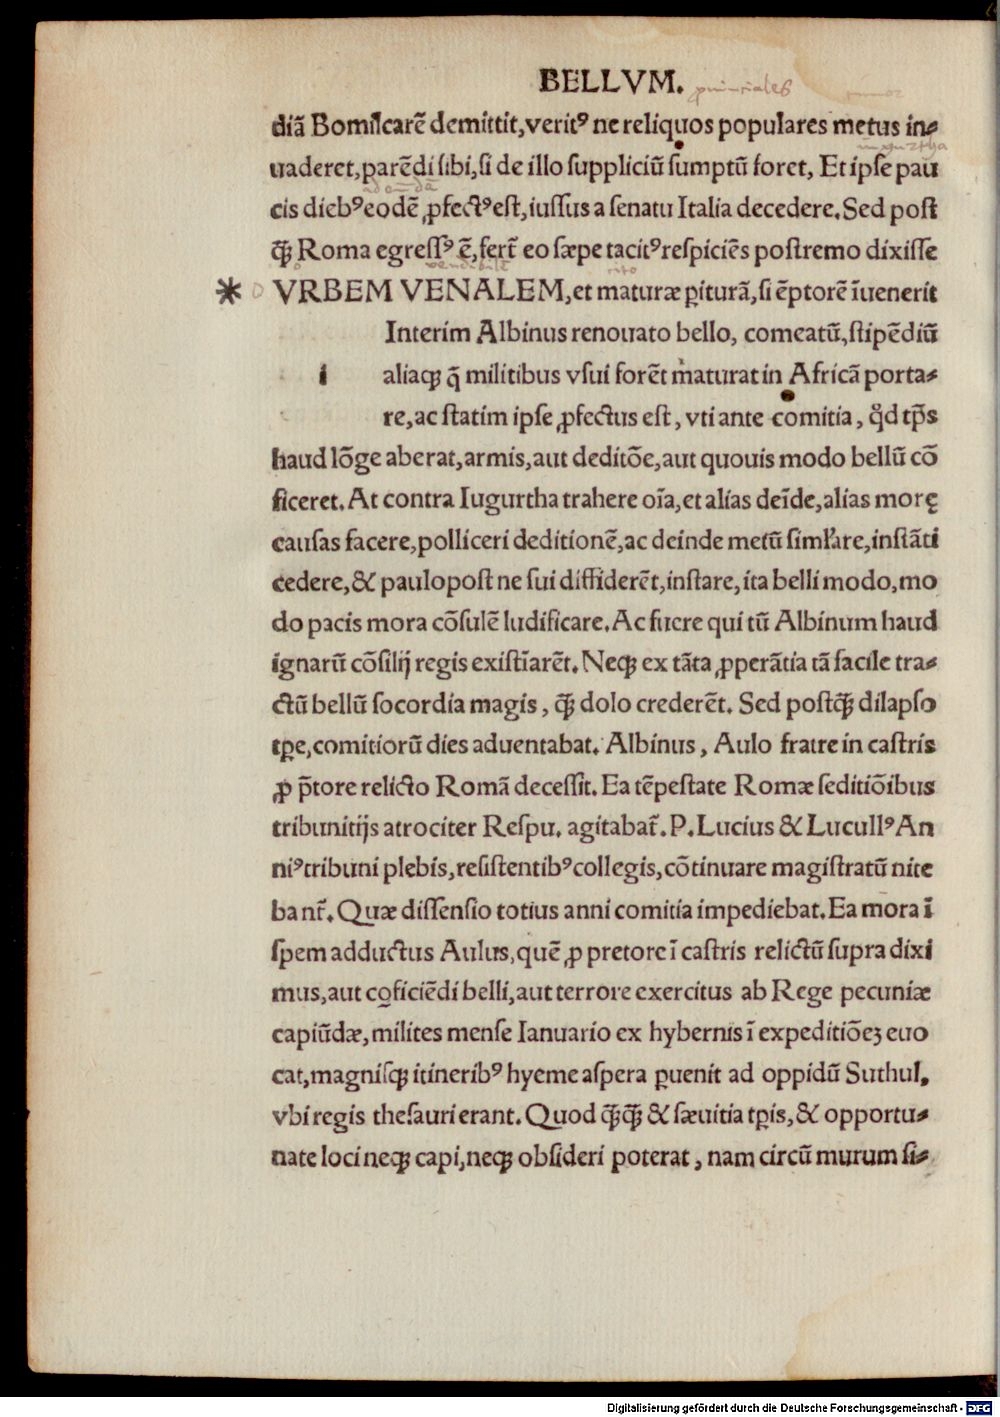 BELLVM.
diā Bomilcarē demittit,veritꝰ ne reliquos populares metus in⸗
uaderet,parēdi sibi,si de illo suppliciū sumptū foret, Et ipse pau
cis diebꝰ eodē ꝓfectꝰ est,iussus a senatu Italia decedere.Sed post
q̄ꝫ Roma egressꝰ ē,fert̄ eo sæpe tacitꝰ respiciēs postremo dixisse
* VRBEM VENALEM,et maturæ ꝑiturā,si ēptorē īuenerit
Interim Albinus renouato bello, comeatū,stipēdiū
i aliaqꝫ q̄ militibus vsui forēt maturat in Africā porta⸗
re,ac statim ipse ꝓfectus est, vti ante comitia, qd̊ tp̄s
haud lōge aberat,armis,aut deditōe,aut quouis modo bellū cō
ficeret.At contra Iugurtha trahere oīa,et alías deīde,alías morę
causas facere,polliceri deditionē,ac deinde metū simlare,instāti
cedere,& paulopost ne sui diffiderēt,instare,ita belli modo,mo
do pacis mora cōsulē ludificare.Ac fuere qui tū Albinum haud
ignarū cōsilij regis existīarēt.Neqꝫ ex tāta ꝓperātia tā facile tra⸗
ctū bellū socordia magis, q̄ꝫ dolo crederēt. Sed postq̄ꝫ dilapso
tꝑe,comitiorū dies aduentabat. Albinus, Aulo fratre in castris
ꝓ p̄tore relicto Romā decessit.Ea tēpestate Romæ seditiōibus
tribunitijs atrociter Respu. agitabat̄.P.Lucius & Lucullꝰ An
niꝰ tribuni plebis,resistentibꝰ collegis,cōtinuare magistratū nite
bant̄.Quæ dissensio totius anni comitia impediebat.Ea mora ī
spem adductus Aulus,quē ꝓ pretore ī castris relictū supra dixi
mus,aut coficiēdi belli,aut terrore exercitus ab Rege pecuniæ
capiūdæ,milites mense Ianuario ex hybernis ī expeditiōeꝫ euo
cat,magnisqꝫ itineribꝰ hyeme aspera ꝑuenit ad oppidū Suthul,
vbi regis thesauri erant.Quod q̄ꝫq̄ꝫ & sæuitia tꝑis,& opportu⸗
nate loci neqꝫ capi,neqꝫ obsideri poterat, nam circū murum si⸗
Digitalisierung gefördert durch die Deutsche Forschungsgemeinschaft - DFG